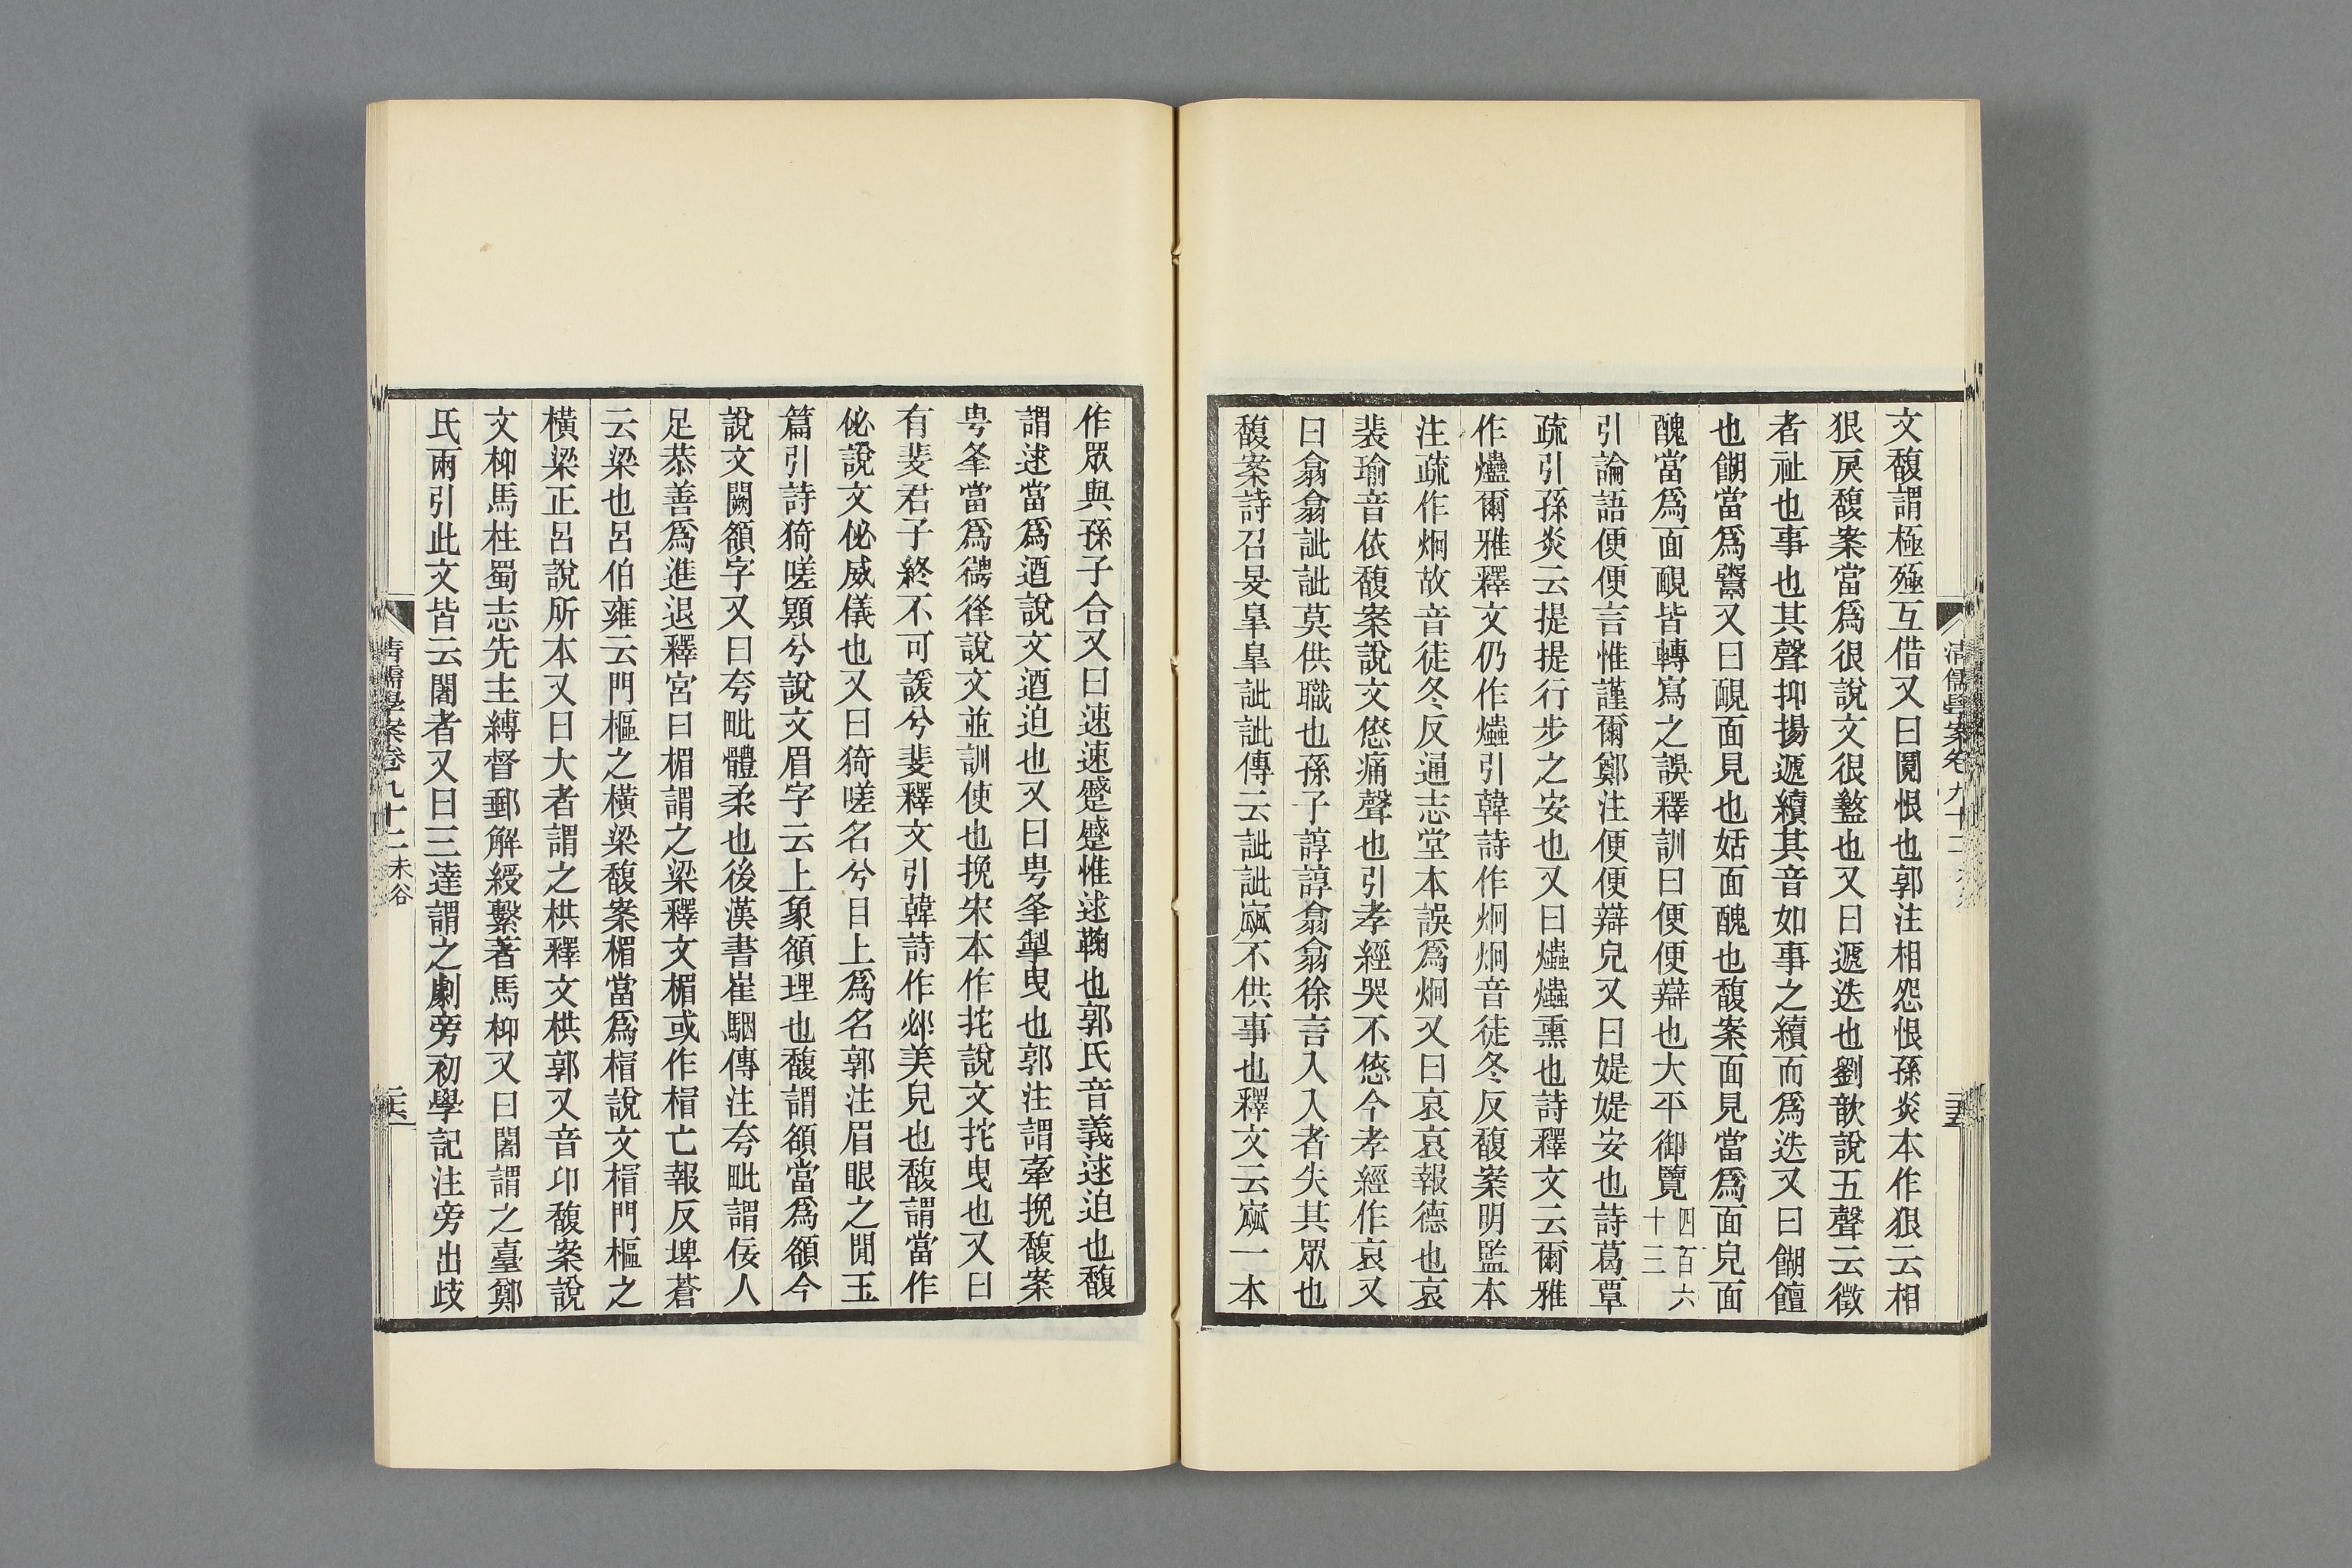 清儒學案卷九十二
文馥謂極殛互借又曰鬩恨也郭注相怨恨孫炎本作狠云相
狠戾馥案當爲很說文很盭也又曰遞迭也劉歆說五聲云徵
者祉也事也其聲抑揚遞續其音如事之續而爲迭又曰餬饘
也餬當爲鬻又曰靦面見也姡面醜也馥案面見當爲面皃面
醜當爲面靦皆轉寫之誤釋訓曰便便辯也大平御覽四百六十三
引論語便便言惟謹爾鄭注便便辯皃又曰媞媞安也詩葛覃
疏引孫炎云提提行步之安也又曰爞爞熏也詩釋文云爾雅
作爞爾雅釋文仍作爞引韓詩作炯炯音徒冬反馥案明監本
注疏作炯故音徒冬反通志堂本誤爲炯又曰哀哀報德也哀
裴瑜音依馥案說文悠痛聲也引孝經哭不悠今孝經作哀又
曰翕翕訿訿莫供職也孫子諄諄翕翕徐言入入者失其眾也
馥案詩召旻皐皐訿訿傳云訿訿窳不供事也釋文云窳一本
作眾與孫子合又曰速速蹙蹙惟逑鞫也郭氏音義逑迫也馥
謂逑當爲遒說文遒迫也又曰甹夆掣曳也郭注謂牽挽馥案
甹夆當爲德㣭說文並訓使也挽宋本作拕說文拕曳也又曰
有斐君子終不可諼兮斐釋文引韓詩作邲美皃也馥謂當作
佖說文佖威儀也又曰猗嗟名兮目上爲名郭注眉眼之閒玉
篇引詩猗嗟顯兮說文眉字云上象頟理也馥謂頟當爲頟今
說文闕頟字又曰夸毗體柔也後漢書崔駰傳注夸毗謂佞人
足恭善爲進退釋宮曰楣謂之梁釋文楣或作楣亡報反埤蒼
云梁也呂伯雍云門樞之橫梁馥案楣當爲楣說文楣門樞之
橫梁正呂說所本又曰大者謂之栱釋文栱郭又音卭馥案說
文枊馬柱蜀志先主縛督郵解綬繫著馬枊又曰闍謂之臺鄭
氏兩引此文皆云闍者又曰三達謂之劇旁初學記注旁出歧
清儒學案卷九十二 未谷